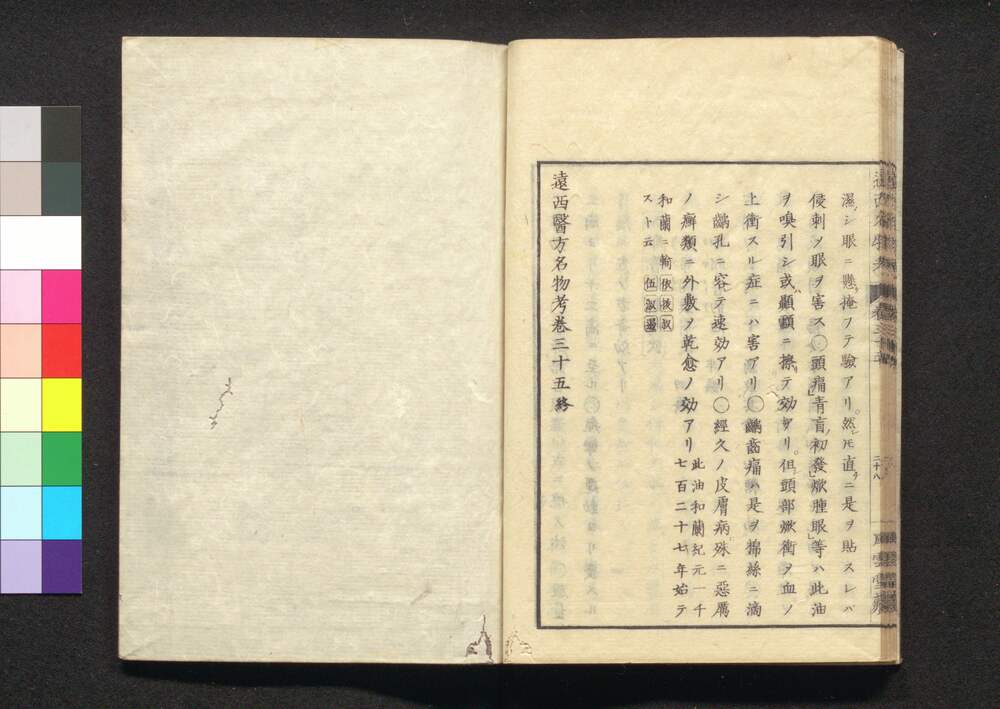 濕シ眼ニ懸掩フテ驗アリ然レモ直ニ是ヲ貼スレハ
侵刺ノ眼ヲ害ス○頭痛青盲初發焮腫眼等ハ此油
ヲ嗅引シ或顳顬ニ擦テ効アリ但頭部焮衝ヲ血ノ
上衝スル症ニハ害アリ○齲齒痛ハ是ヲ綿絲ニ滴
シ齲孔ニ容テ速効アリ○經久ノ皮膚病殊ニ惡厲
ノ癬類ニ外敷ノ乾愈ノ効アリ
此油和蘭紀元一千
七百二十七年始テ
和蘭ニ輸
スト云
遠西醫方名物考卷三十五終
二十八